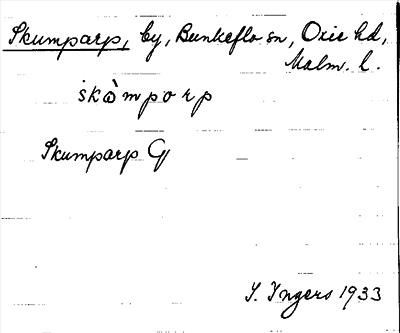 Skumparp, by, Bunkeflo sn, Oxie hd,
Malm. l.
skòmporp
Skumparp G
I. Ingers 1933